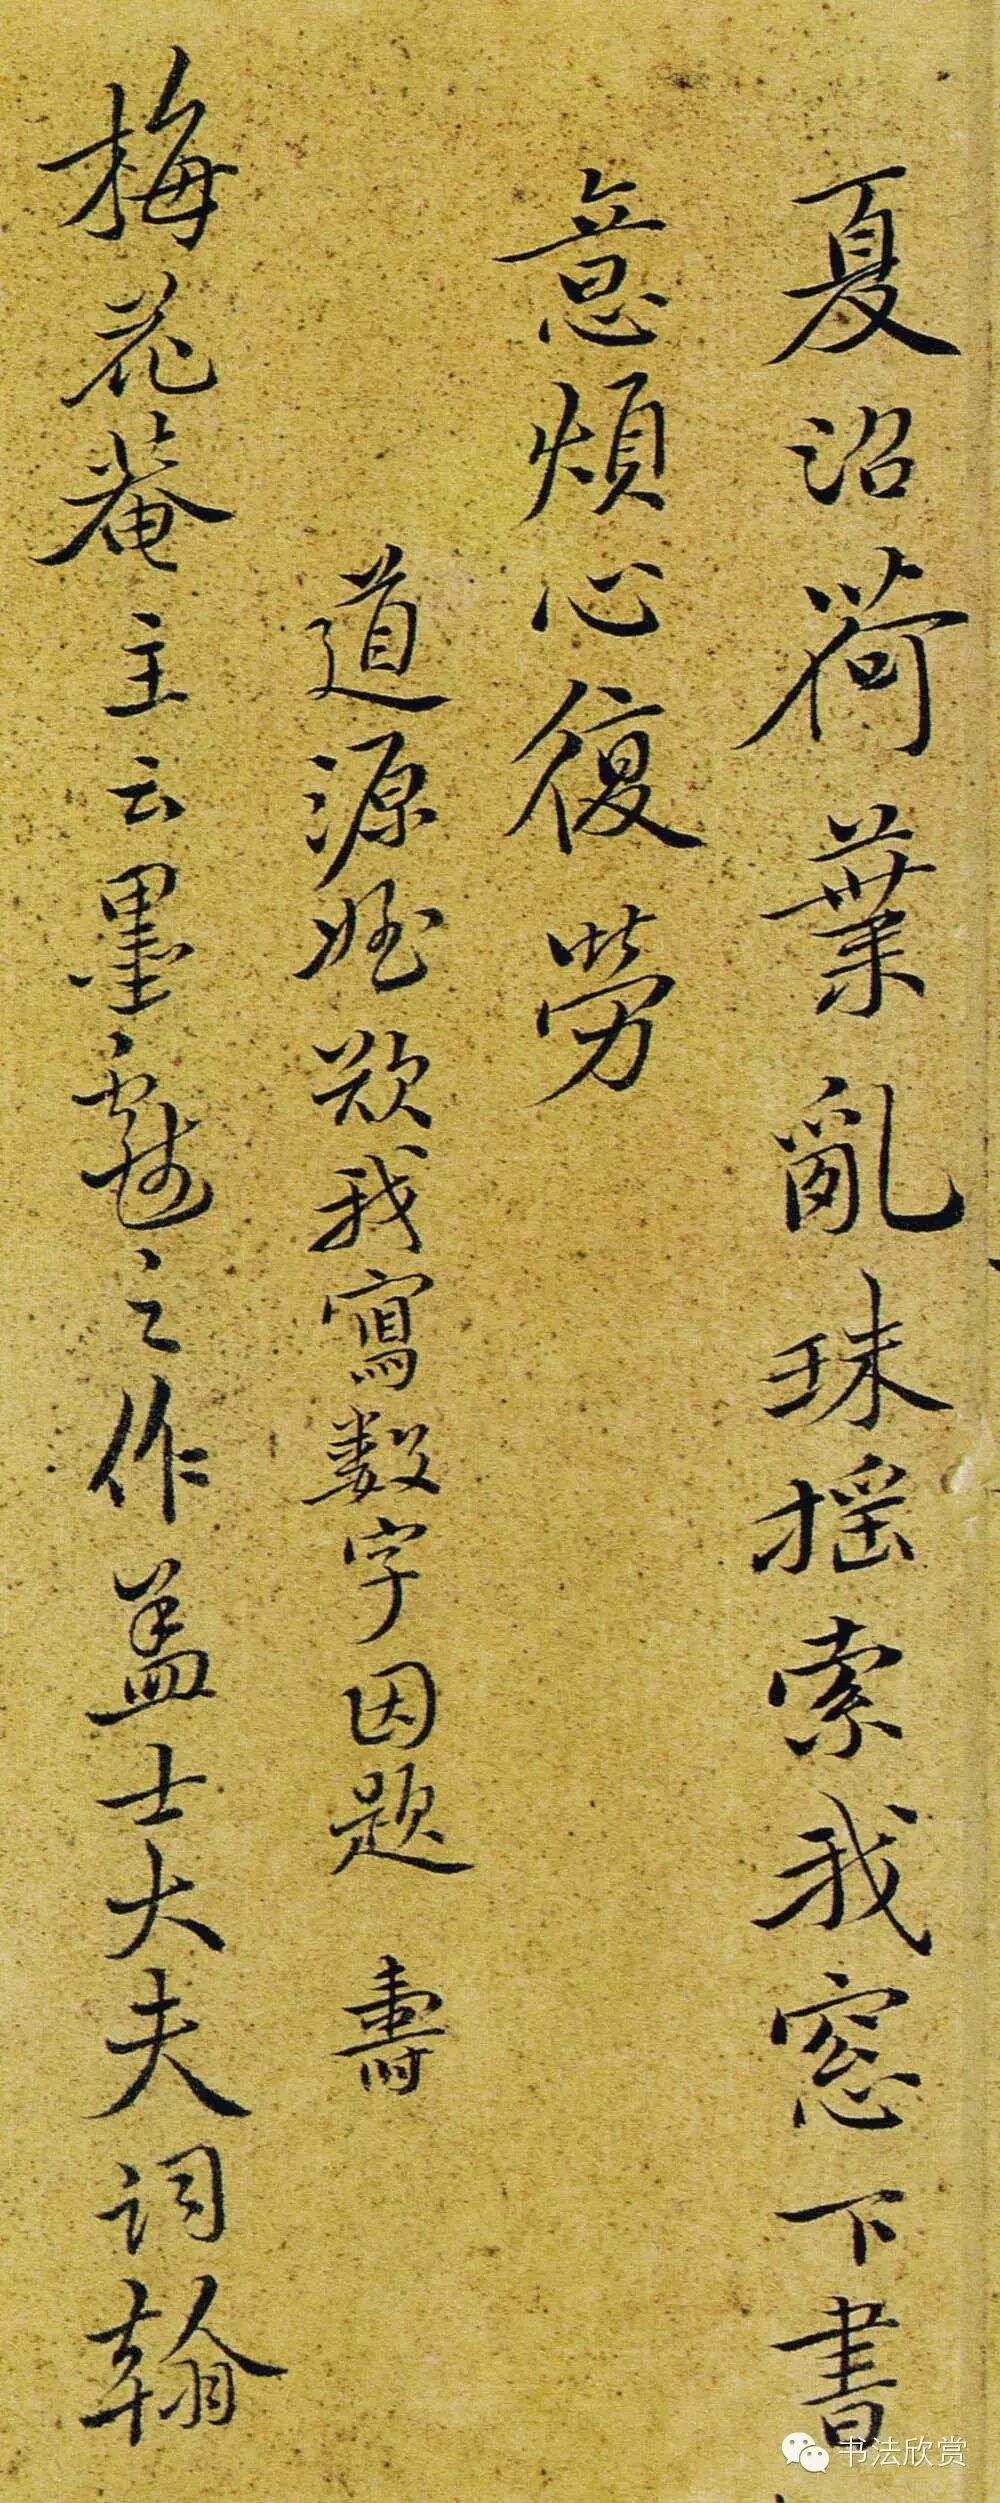 夏沼荷葉亂珠摇索我窓下書
意煩心復勞
道源姪欲我寫數字因题 壽
梅花菴主云墨戲之作盖士大夫詞翰
书法欣赏